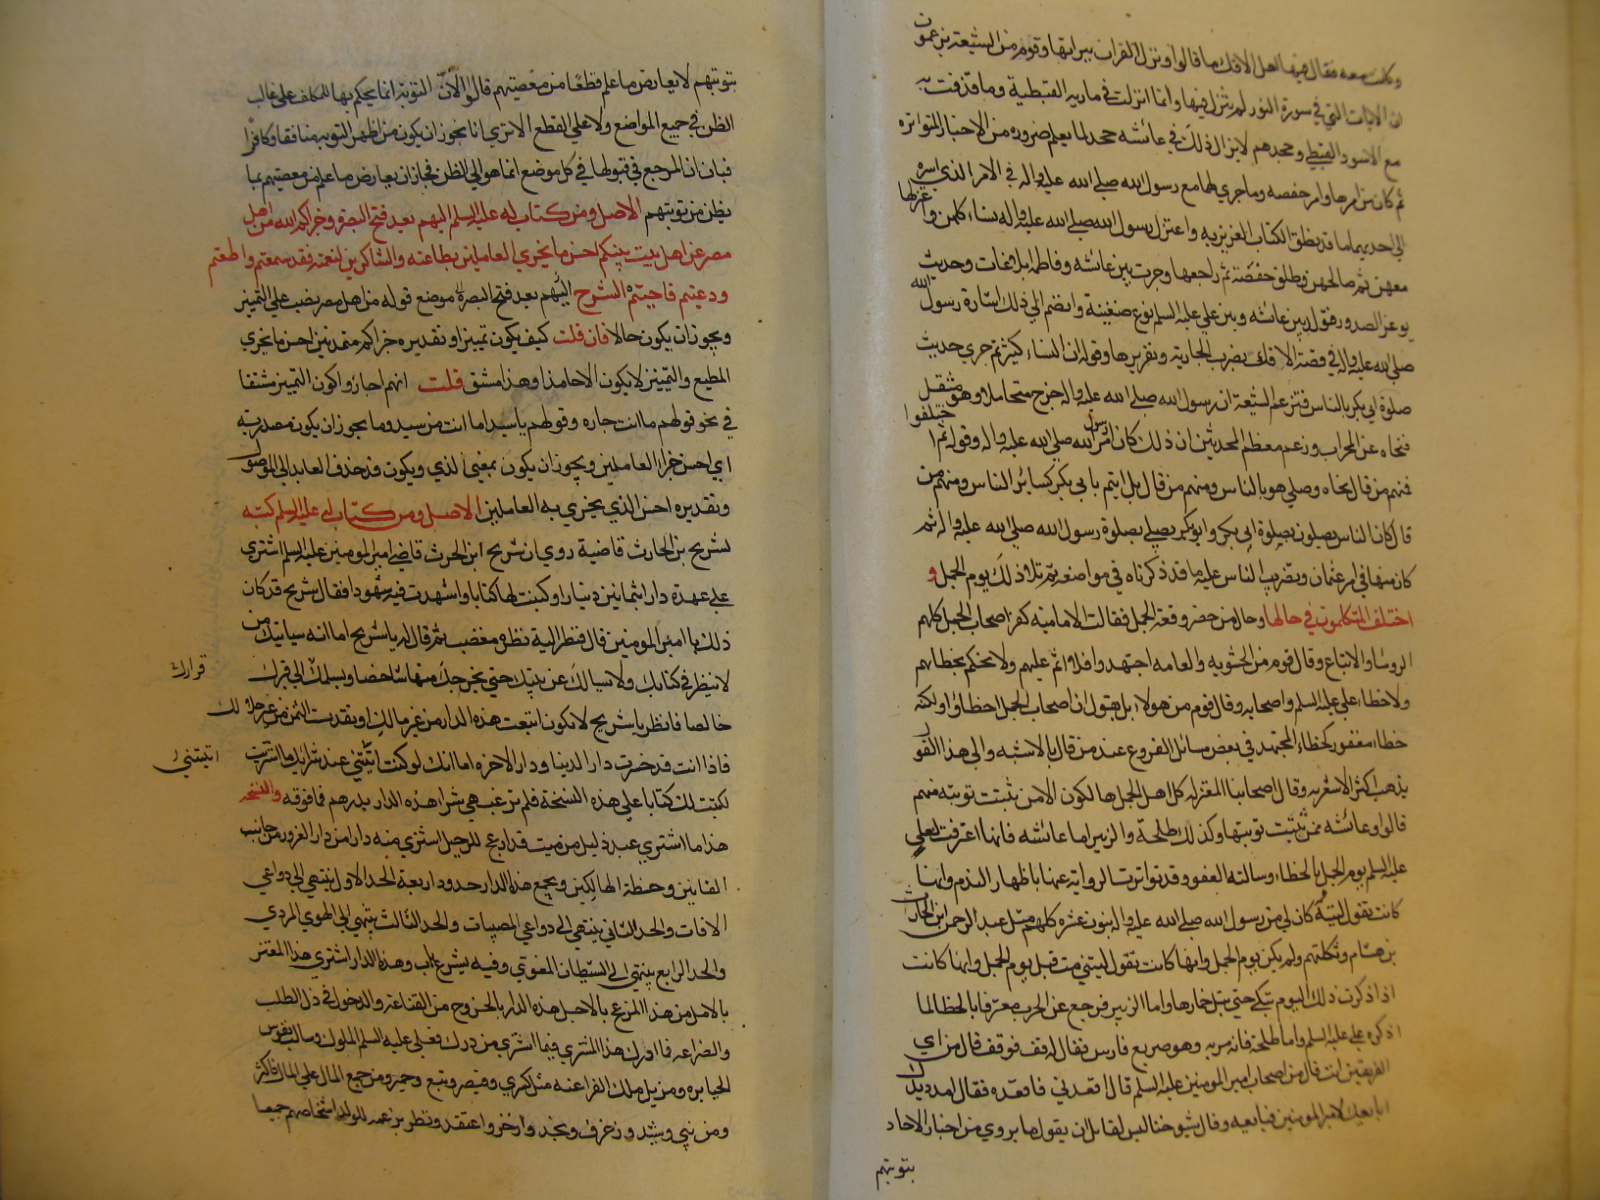 وكلت معه فقال فيها اهل الافك ما قالوا ونزل القران ببراءتها وقوم من الشيعة يزعمون
ان الايات التي في سورة النور لم تنزل فيها وانما انزلت في مارية القبطية وما قذفت به
مع الاسود القبطي وجحدهم لانزال ذلك في عائشه جحد لما يعلم ضروره من الاخبار المتواتره
ثم كان من امرها وامر حفصه وما جرى لهما مع رسول الله صلى الله عليه واله في الامر الذي اسره
الى احديهما ما قد نطق الكتاب العزيز به واعتزل رسول الله صلى الله عليه واله نساءه كلهن واعتزلها
معهن ثم صالحهن وطلق حفصة ثم راجعها وجرت بين عائشه وفاطمه ابلاغات وحديث
يوغر الصدور فتولد بين عائشه وبين علي عليه السلم نوع ضغينة وانضم الى ذلك اشارة رسول الله
صلى الله عليه واله في قصة الافك بضرب الجارية وتقريرها وقوله ان النساء كثير ثم جرى حديث
صلوة ابي بكر بالناس فتزعم الشيعة ان رسول الله صلى الله عليه واله خرج متحاملا وهو مثقل
فنحاه عن المحراب وزعم معظم المحدثين ان ذلك كان امر رسول الله صلى الله عليه واله وقوله ثم اختلفوا
فمنهم من قال نحاه وصلى هو بالناس ومنهم من قال بل ايتم بابي بكر كسائر الناس ومنهم من
قال كان الناس يصلون بصلوة ابي بكر وابو بكر يصلي بصلوة رسول الله صلى الله عليه واله ثم
كان منها في امر عثمان وتضريب الناس عليه ما قد ذكرناه في مواضعه ثم تلا ذلك يوم الجمل و
اختلف المتكلمون في حالها وحال من حضر وقعة الجمل فقالت الامامية كفر اصحاب الجمل كلهم
الروساء والاتباع وقال قوم من الحشويه والعامه اجتهدوا فلا اثم عليهم ولا نحكم بخطائهم
ولا خطاء علي عليه السلم واصحابه وقال قوم من هولاء بل نقول ان اصحاب الجمل اخطاؤا ولكنه
خطاء مغفور كخطاء المجتهد في بعض مسائل الفروع عند من قال بالاشبه والى هذا القول
يذهب اكثر الاشعريه وقال اصحابنا المعتزله كل اهل الجمل هالكون الا من ثبتت توبته منهم
قالوا وعائشه ممن ثبتت توبتها وكذلك طلحة والزبير اما عائشه فانها اعترفت لعلي
عليه السلم يوم الجمل بالخطاء وسالته العفو وقد تواترت الروايه عنها باظهار الندم وانها
كانت تقول ليته كان لي من رسول الله صلى الله عليه واله بنون عشره كلهم مثل عبد الرحمن ابن الحارث
بن هشام وثكلتهم ولم يكن يوم الجمل وانها كانت تقول ليتني مت قبل يوم الجمل وانها كانت
اذا ذكرت ذلك اليوم تبكي حتى تبل خمارها واما الزبير فرجع عن الحرب معترفا بالخطا لما
اذكره علي عليه السلم واما طلحة فانه مر به وهو صريع فارس فقال له قف فوقف قال من اي
الفريقين انت قال من اصحاب امير المومنين عليه السلم قال اقعدني فاقعده فقال امدد يدك
ابايعك لامير المومنين فبايعه وقال شيوخنا ليس لقائل ان يقول ما يروى من اخبار الاحاد
بتوبتهم
بتوبتهم لا يعارض ما علم قطعا من معصيتهم قالوا لان التوبة انما يحكم بها للمكلف على غالب
الظن في جميع المواضع ولا على القطع الا ترى انا نجوز ان يكون من اظهر التوبه منافقا وكافرا
فبان ان المرجع في قبولها في كل موضع انما هو الى الظن فجاز ان يعارض ما علم من معصيتهم بما
يظن من توبتهم الاصل ومن كتاب له عليه السلم اليهم بعد فتح البصرة وجزاكم الله من اهل
مصر عن اهل بيت نبيكم احسن ما يجزي العاملين بطاعته والشاكرين لنعمته فقد سمعتم واطعتم
ودعيتم فاجبتم الشرح اليهم بعد فتح البصرة موضع قوله من اهل مصر نصب على التمييز
ويجوز ان يكون حالا فان قلت كيف يكون تمييزا وتقديره جزاكم متمدنين احسن ما يجزي
المطيع والتمييز لا يكون الا جامدا وهذا مشتق قلت انهم اجازوا كون التمييز مشتقا
في نحو قولهم ما انت جاره وقولهم يا سيدا ما انت من سيد وما يجوز ان يكون مصدرية
اي احسن جزاء العاملين ويجوز ان يكون بمعنى الذي ويكون قد حذف العايد الى الموصول
وتقديره احسن الذي يجزي به العاملين الاصل ومن كتاب له عليه السلم كتبه
لشريح بن الحارث قاضيه روي ان شريح ابن الحرث قاضي امير المومنين عليه السلم اشترى
على عهدة دارا بثمانين دينارا وكتبت لها كتابا واشهدت فيه شهودا فقال شريح قد كان
ذلك يا امير المومنين قال فنظر اليه نظر مغضب ثم قال له يا شريح اما انه سياتيك من
لا ينظر في كتابك ولا يسالك عن بينتك حتى يخرجك منها شاخصا ويسلمك الى قبرك
قرارك
خالصا فانظر يا شريح لا تكون ابتعت هذه الدار من غير مالك او نقدت الثمن من غير حلالك
فاذا انت قد خسرت دار الدنيا ودار الاخره اما انك لو كنت اتيتني عند شرائك ما اشتريت
اتيتني
لكتبت لك كتابا على هذه النسخة فلم ترغب في شراء هذه الدار بدرهم فما فوقه والنسخة
هذا ما اشترى عبد ذليل من ميت قد ازعج للرحيل اشترى منه دارا من دار الغرور من جانب
الفانين وخطة الهالكين ويجمع هذه الدار حدود اربعة الحد الاول ينتهي الى دواعي
الافات والحد الثاني ينتهي الى دواعي المصيبات والحد الثالث ينتهي الى الهوى المردي
والحد الرابع ينتهي الى الشيطان المغوي وفيه يشرع باب وهذه الدار اشترى هذا المغتر
بالامل من هذا المزعج بالاجل هذه الدار بالخروج من القناعة والدخول في ذل الطلب
والضراعه فما ادرك هذا المشتري فيما اشترى من درك فعلى عليه السلم الملوك وسالب نفوس
الجبابره ومزيل ملك الفراعنه مثل كسرى وقيصر وتبع وحمير ومن جمع المال على المال فاكثر
ومن بنى وشيد وزخرف ونجد وادخر واعتقد ونظر بزعمه للولد اشخاصهم جميعا